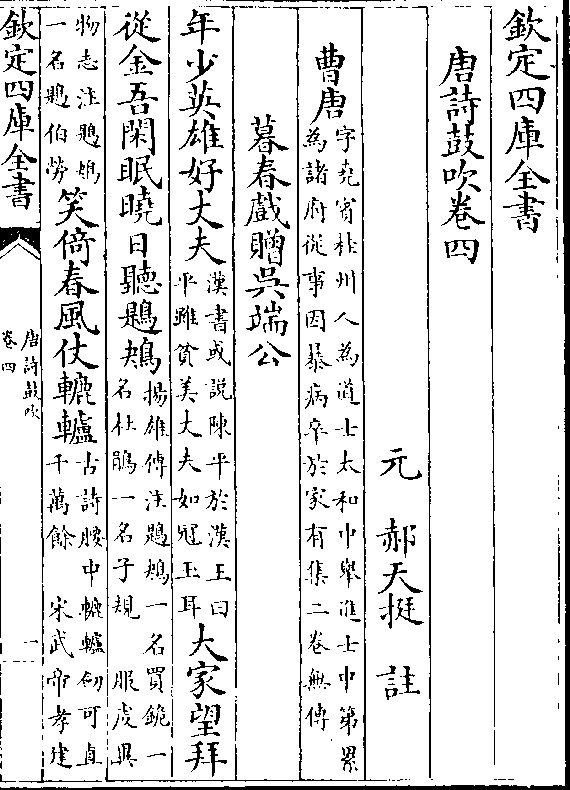 欽定四庫全書
唐詩鼓吹卷四
元　郝天挺　註
曹唐字堯賓桂州人為道士太和中舉進士中第累為諸府從事因暴病卒於家有集二卷無傳
暮春戲贈吳端公
年少英雄好丈夫漢書或說陳平於漢王曰平雖貧美丈夫如冠玉耳大家望拜
從金吾閑眠曉日聽鶗鴂揚雄傳注鶗鴂一名買䤥一名杜鵑一名子規　服䖍異
物志注鶗鴂一名鶗伯勞笑倚春風仗轆轤古詩腰中轆轤劒可直千萬餘　宋武帝孝建
欽定四庫全書
唐詩鼓吹
卷四
一